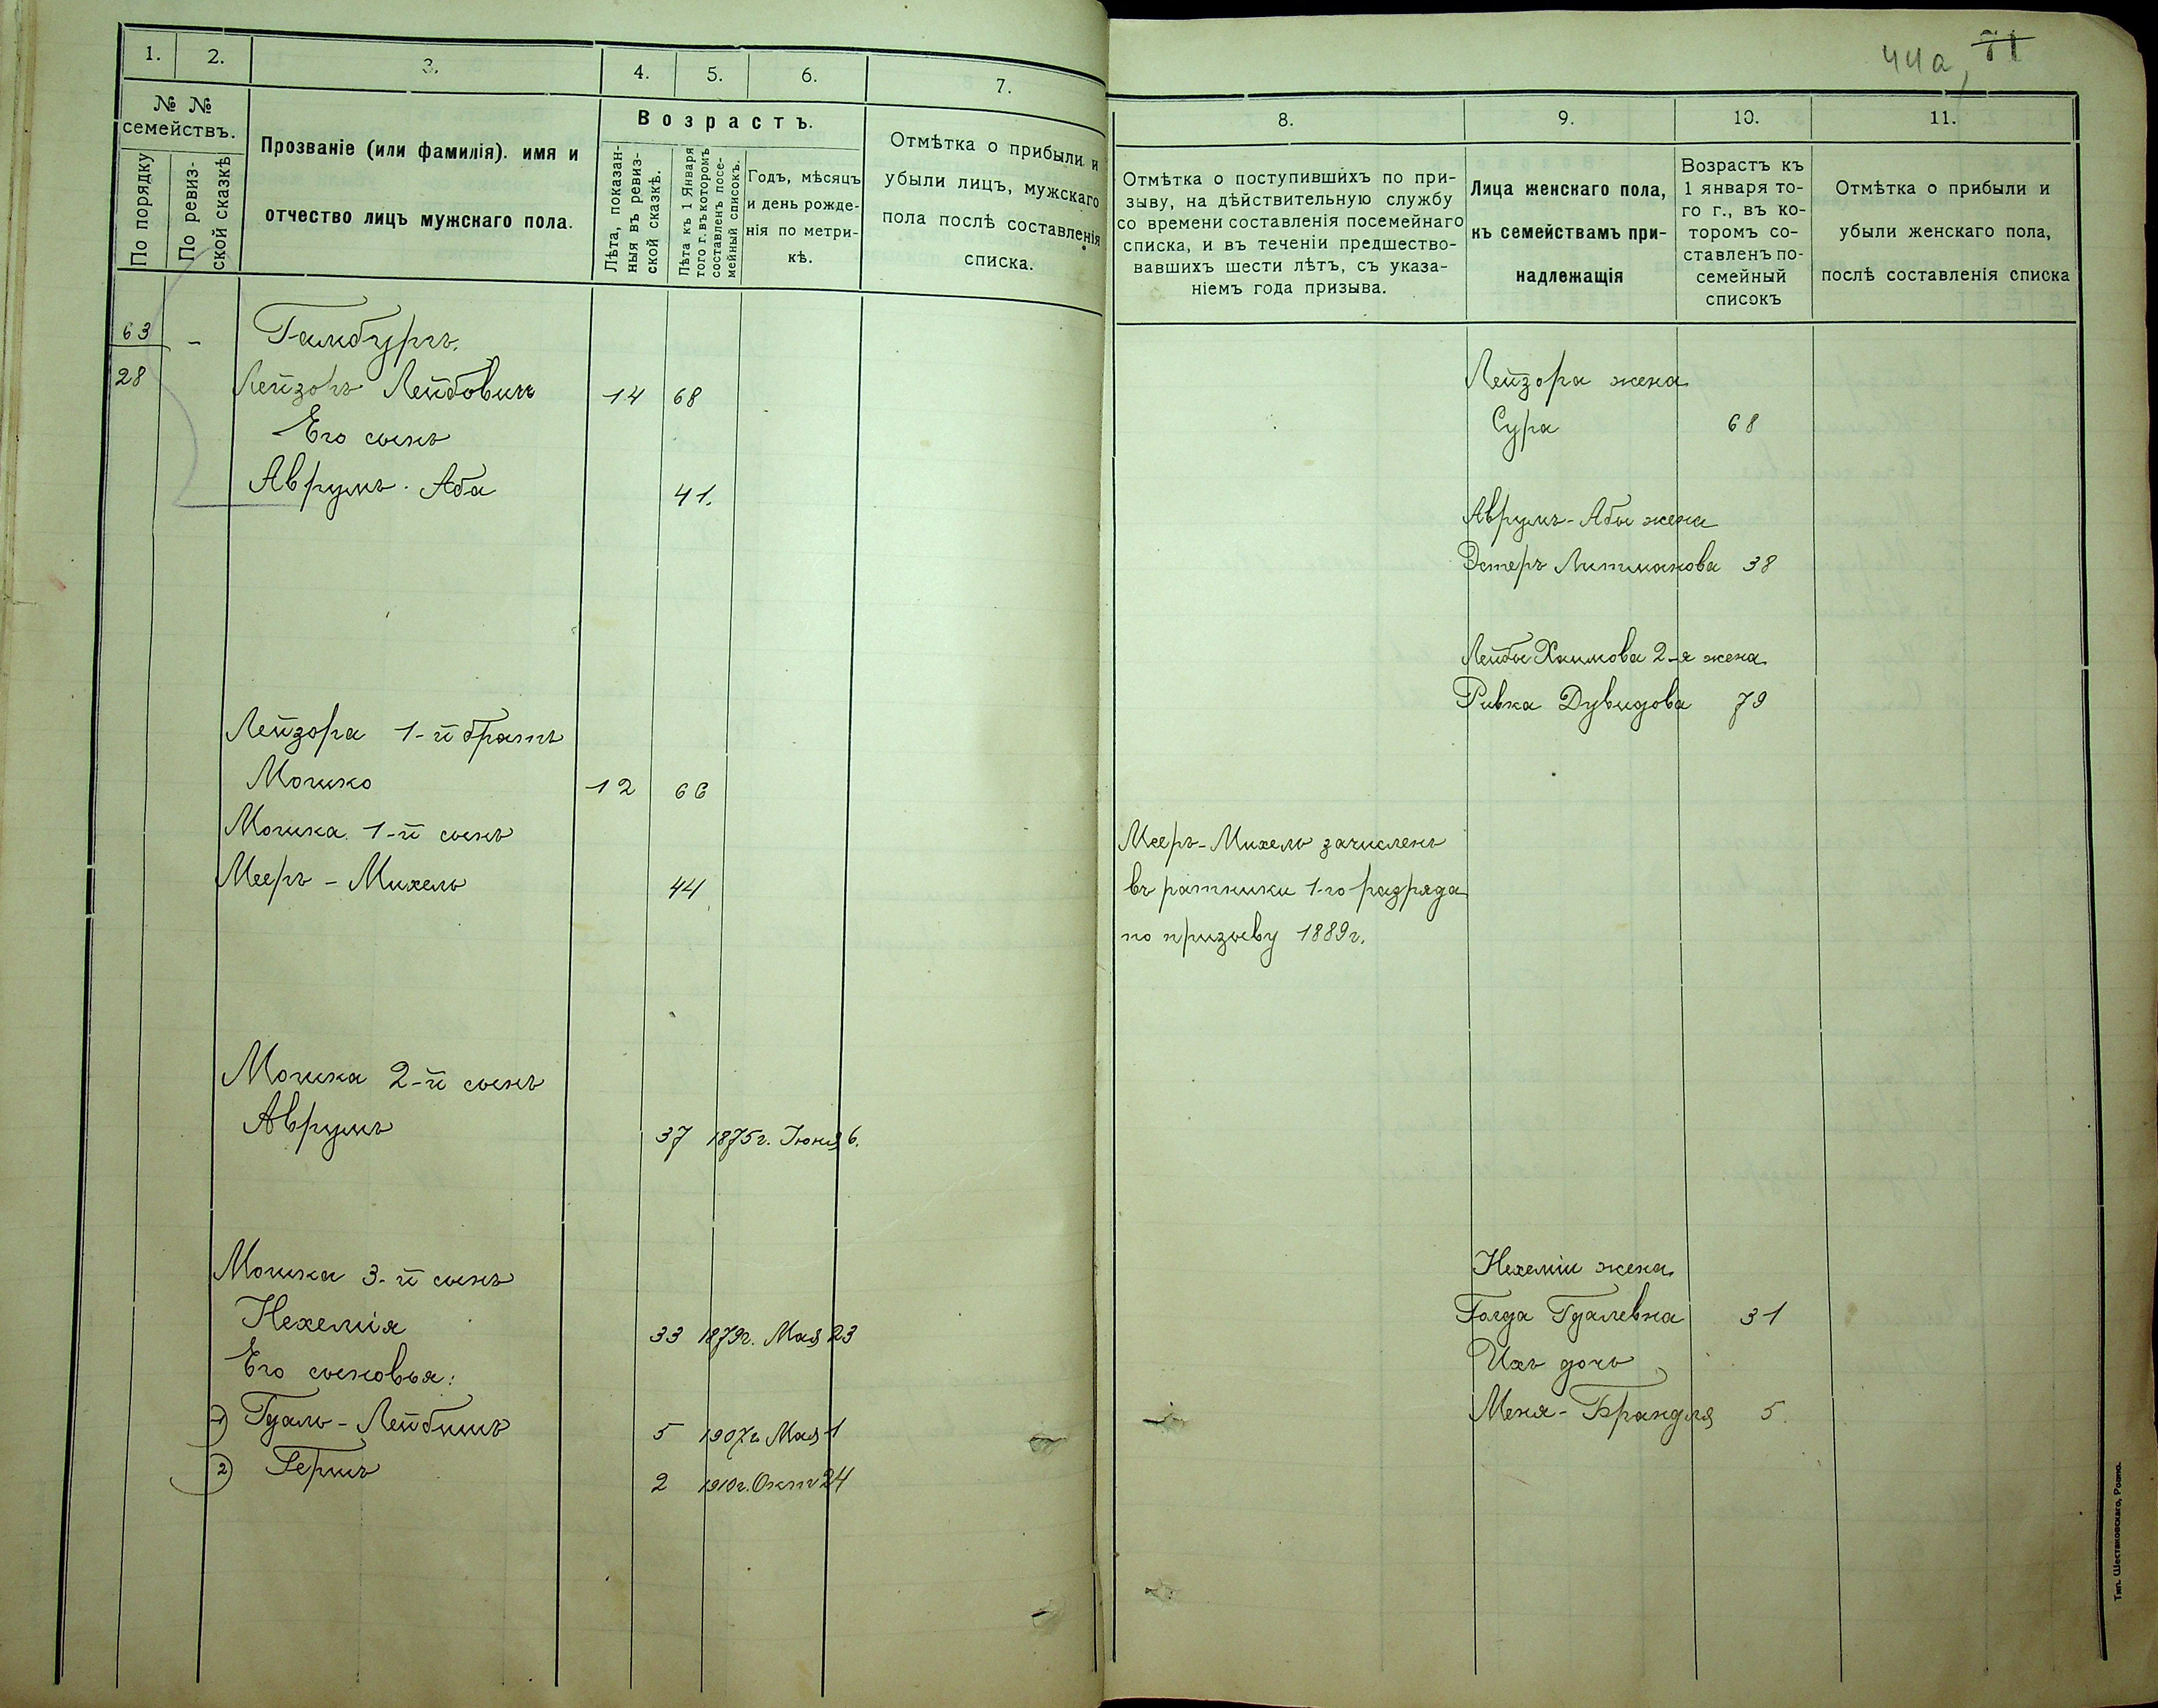 1. 2. 3. 4. 5. 6. 7.
№ №
семействъ.
По порядку
По ревиз-
ской сказкѣ
Прозваніе (или фамилія). имя и
отчество лицъ мужскаго пола.
Возрастъ.
Лѣта, показан-
ныя въ ревиз-
ской сказкѣ.
Лѣта къ 1 Января
того г. въ которомъ
составленъ посе-
мейный списокъ.
Годъ, мѣсяцъ
и день рожде-
нія по метри-
кѣ.
Отмѣтка о прибыли и
убыли лицъ, мужскаго
пола послѣ составленія
списка.
63 - Гамбургъ.
28 Лейзоръ Лейбовичъ 14 68
Его сынъ
Аврумъ-Аба 41.
Лейзора 1-й братъ
Мошко 12 66
Мошка 1-й сынъ
Мееръ-Михель 44
Мошка 2-й сынъ
Аврумъ 37 1875г. Іюня 6.
Мошка 3-й сынъ
Нехемія 33 1879г. Мая 23
Его сыновья:
1) Гдаль-Лейбишъ 5 1907г. Мая 1
2) Гершъ 2 1910г. Окт 24
44а, 71
8. 9. 10. 11.
Отмѣтка о поступившихъ по при-
зыву, на дѣйствительную службу
со времени составленія посемейнаго
списка, и въ теченіи предшество-
вавшихъ шести лѣтъ, съ указа-
ніемъ года призыва.
Лица женскаго пола,
къ семействамъ при-
надлежащія
Возрастъ къ
1 января то-
го г., въ ко-
торомъ со-
ставленъ по-
семейный
списокъ
Отмѣтка о прибыли и
убыли женскаго пола,
послѣ составленія списка
Лейзора жена
Сура 68
Аврумъ-Абы жена
Эстеръ Литманова 38
Лейбы Хаимова 2-я жена
Ривка Дувидова 79
Мееръ-Михель зачисленъ
въ ратники 1-го разряда
по призыву 1889г.
Нехеміи жена
Голда Гдалевна 31
Ихъ дочь
Меня-Брандля 5.
Тип. Шестаковскаго, Ровно.